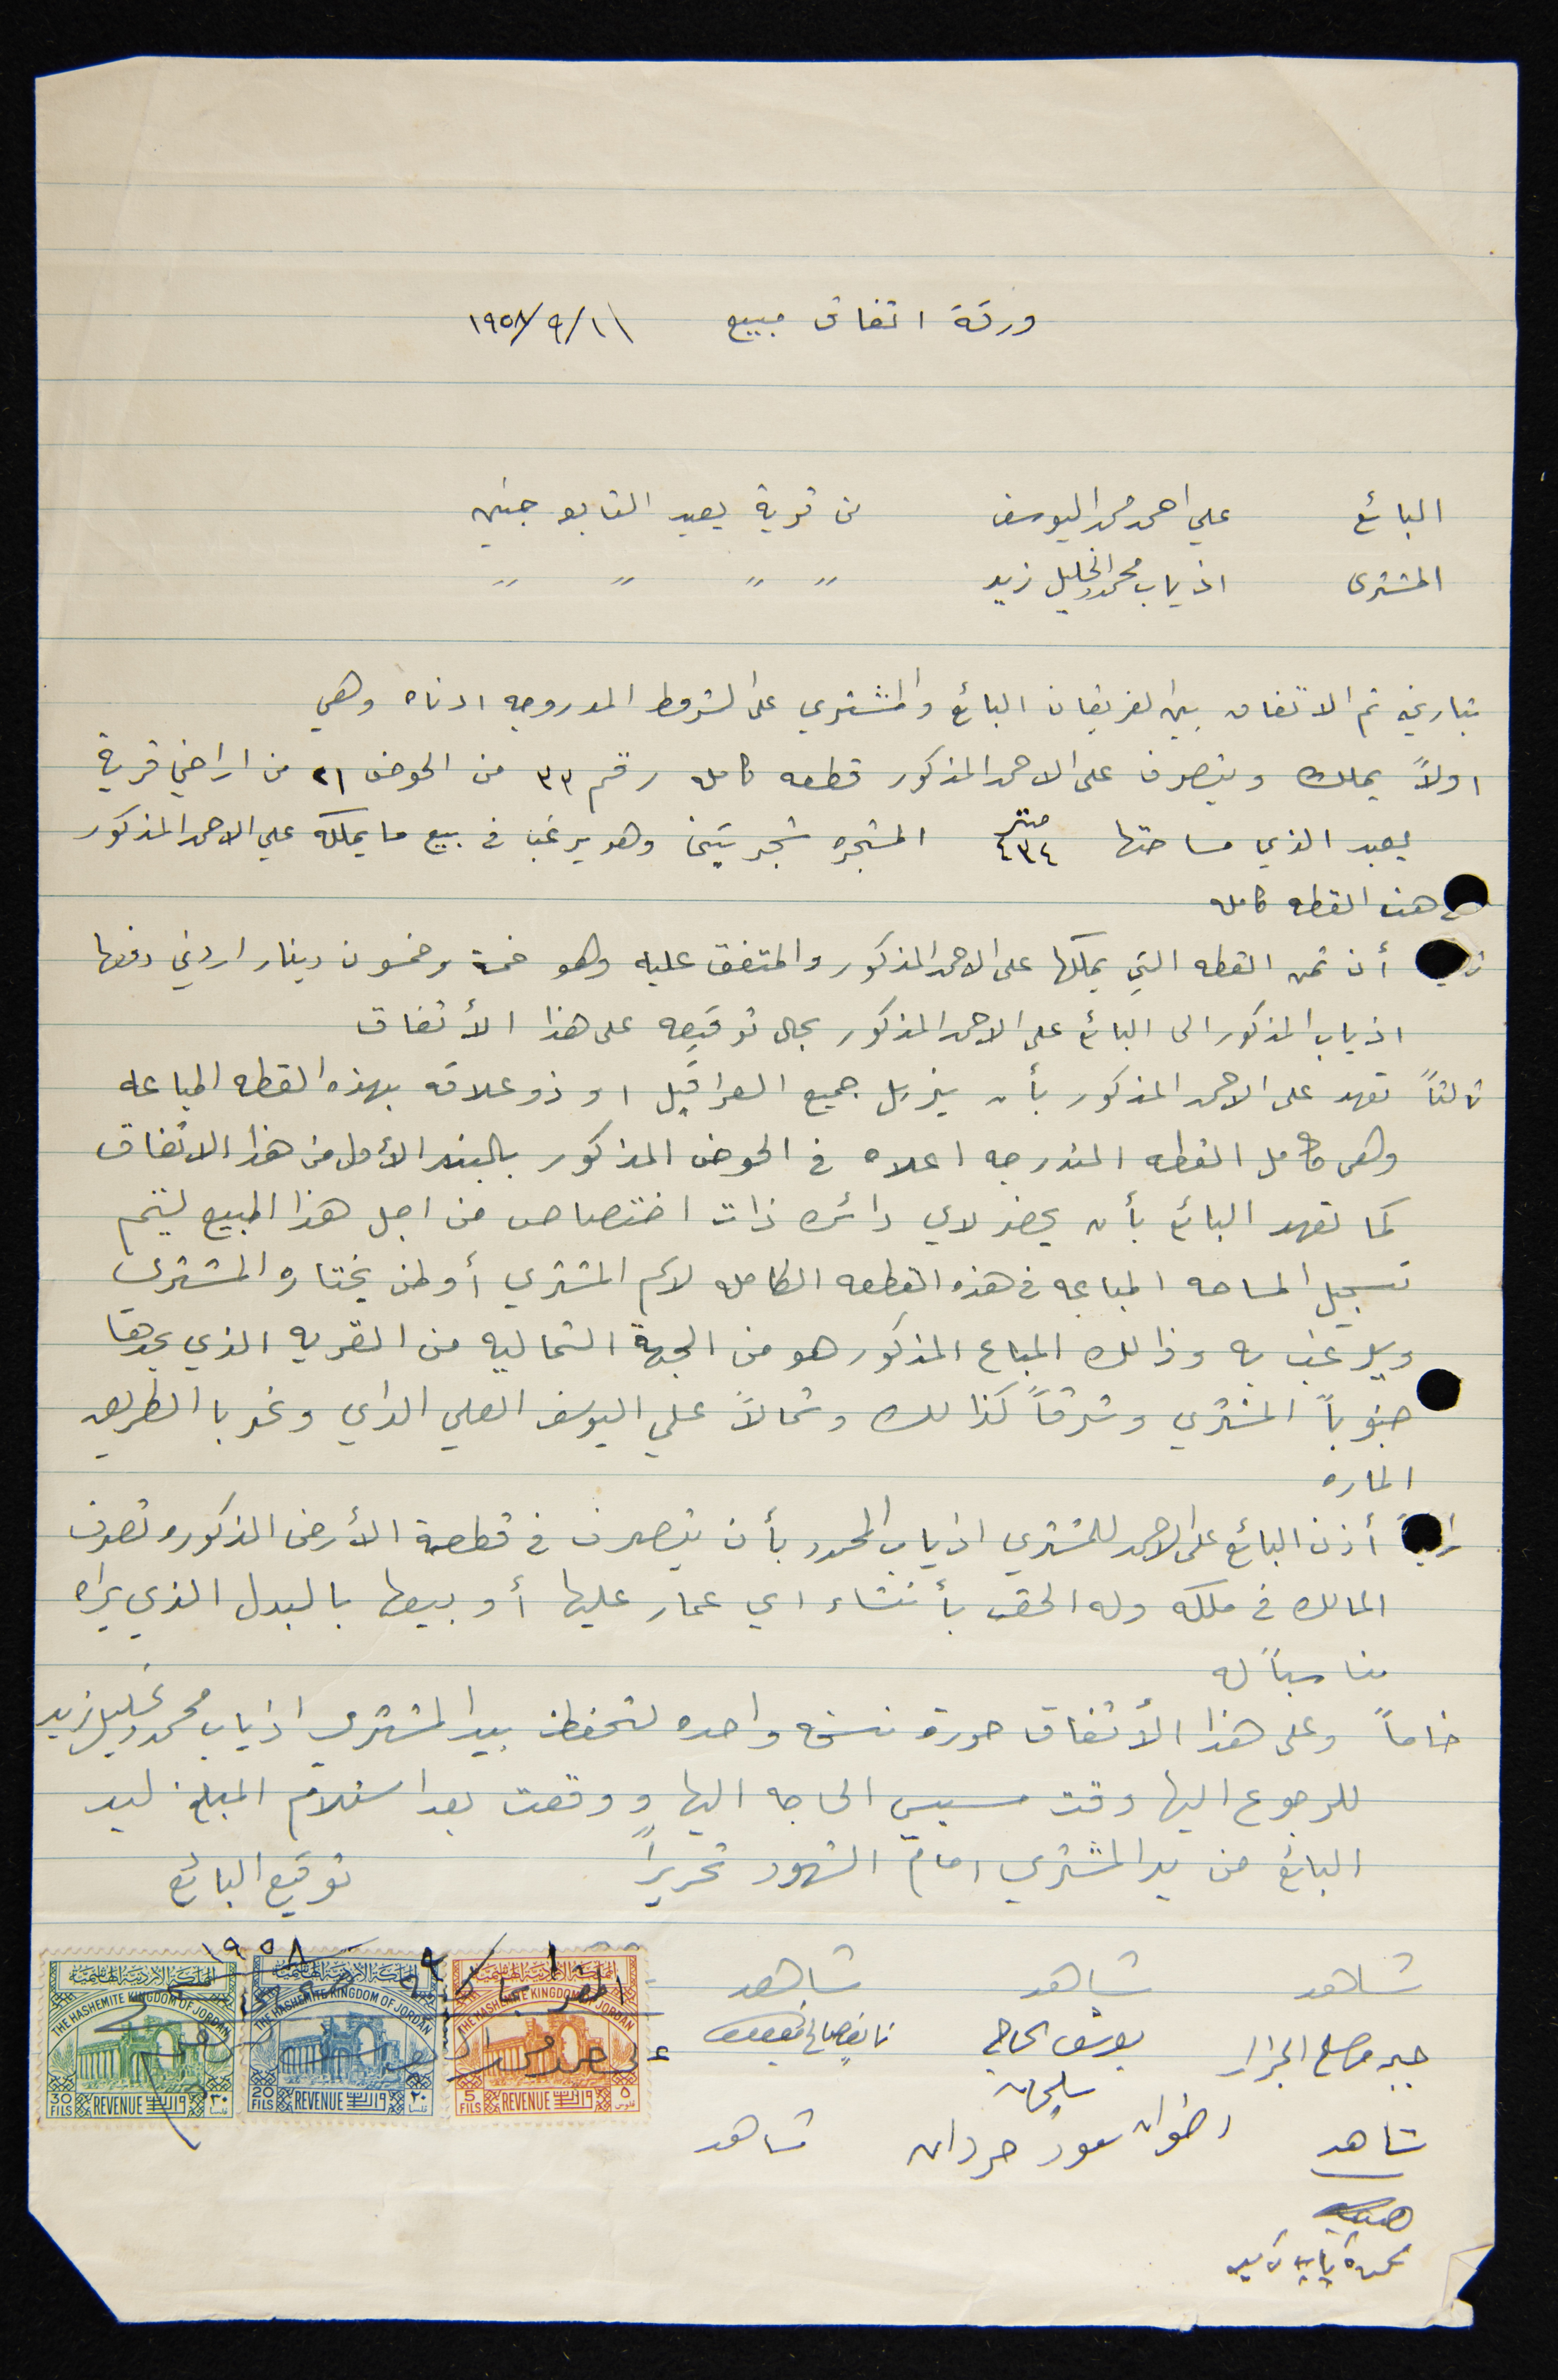 ورقة اتفاق مبيع ١١/٩/١٩٥٨
البائع علي احمد محمد اليوسف من قرية يعبد التابع جنين
المشتري اذياب محمود الخليل زيد " " " "
بتاريخه تم الاتفاق بين الفريقان البائع والمشتري على الشروط المدروجه ادناه وهي
اولاً يملك ويتصرف على الاحمد المذكور قطعه كامله رقم ٣٣ من الحوض ٢١ من اراضي قرية
يعبد الذي مساحتها ٤٣٤ متر المشجره شجر تين وهو يرغب في بيع ما يملكه علي الاحمد المذكور
هذه القطعه كامله
أن ثمن القطعه التي يملكها على الاحمد المذكور والمتفق عليه وهو خمسة وخمسون دينار اردني دفعها
اذياب المذكور الى البائع على الاحمد المذكور بحال توقيعه على هذا الأتفاق
ثالثاً تعهد على الاحمد المذكور بأن يزيل جميع العراقيل او ذو علاقه بهذه القطعه المباعه
وهي كامل القطعه المندرجه اعلاه في الحوض المذكور بالبند الأول من هذا الاتفاق
كما تعهد البائع بأن يحضر لاي دائره ذات اختصاص من اجل هذا المبيع ليتم
تسجيل المساحه المباعه في هذه القطعه الكامله لاسم المشتري أو لمن يختاره المشتري
ويرغب به وذالك المباع المذكور هو من الجهة الشماليه من القريه الذي يحدها
جنوباً المشتري وشرقاً كذالك وشمالاً علي اليوسف العلي الداي وغربا الطريق
الماره
رابعاً أذن البائع على الاحمد للمشتري اذياب المحمود بأن يتصرف في قطعة الأرض المذكوره تصرف
المالك في ملكه وله الحق بأنشاء اي عمار عليها أو بيعها بالبدل الذي يراه
مناسباً له
خامساً وعلى هذا الأتفاق حررت نسخه واحده لتحفظ بيد المشتري اذياب محمود خليل زيد
للرجوع اليها وقت مسيس الحاجه اليها ووقعت بعد استلام المبلغ ليد
البائع من يد المشتري امام الشهود تحريراً توقيع البائع
١٩٥٨
شاهد شاهد شاهد
جبر مصلح الجرار يوسف الحاج
سليمان
شاهد رضوان سعود حردان شاهد
المملكة الاردنية الهاشمية
THE HASHEMITE KINGDOM OF JORDAN
5 FILS REVENUE واردات ٥ فلوس
المملكة الاردنية الهاشمية
THE HASHEMITE KINGDOM OF JORDAN
20 FILS REVENUE واردات ٢٠ فلسا
المملكة الاردنية الهاشمية
THE HASHEMITE KINGDOM OF JORDAN
30 FILS REVENUE واردات ٣٠ فلسا